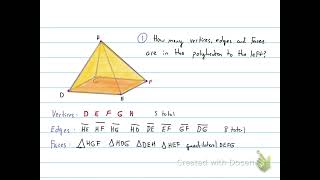 ① How many vertices, edges and faces
are in the polyhedron to the left?
H
F
D
Vertices: D E F G H 5 total
Edges: H͞E H͞F H͞G H͞D D͞E E͞F G͞F D͞G 8 total
Faces: △HGF △HDG △DEH △HEF quadrilateral DEFG
Created with Doceri